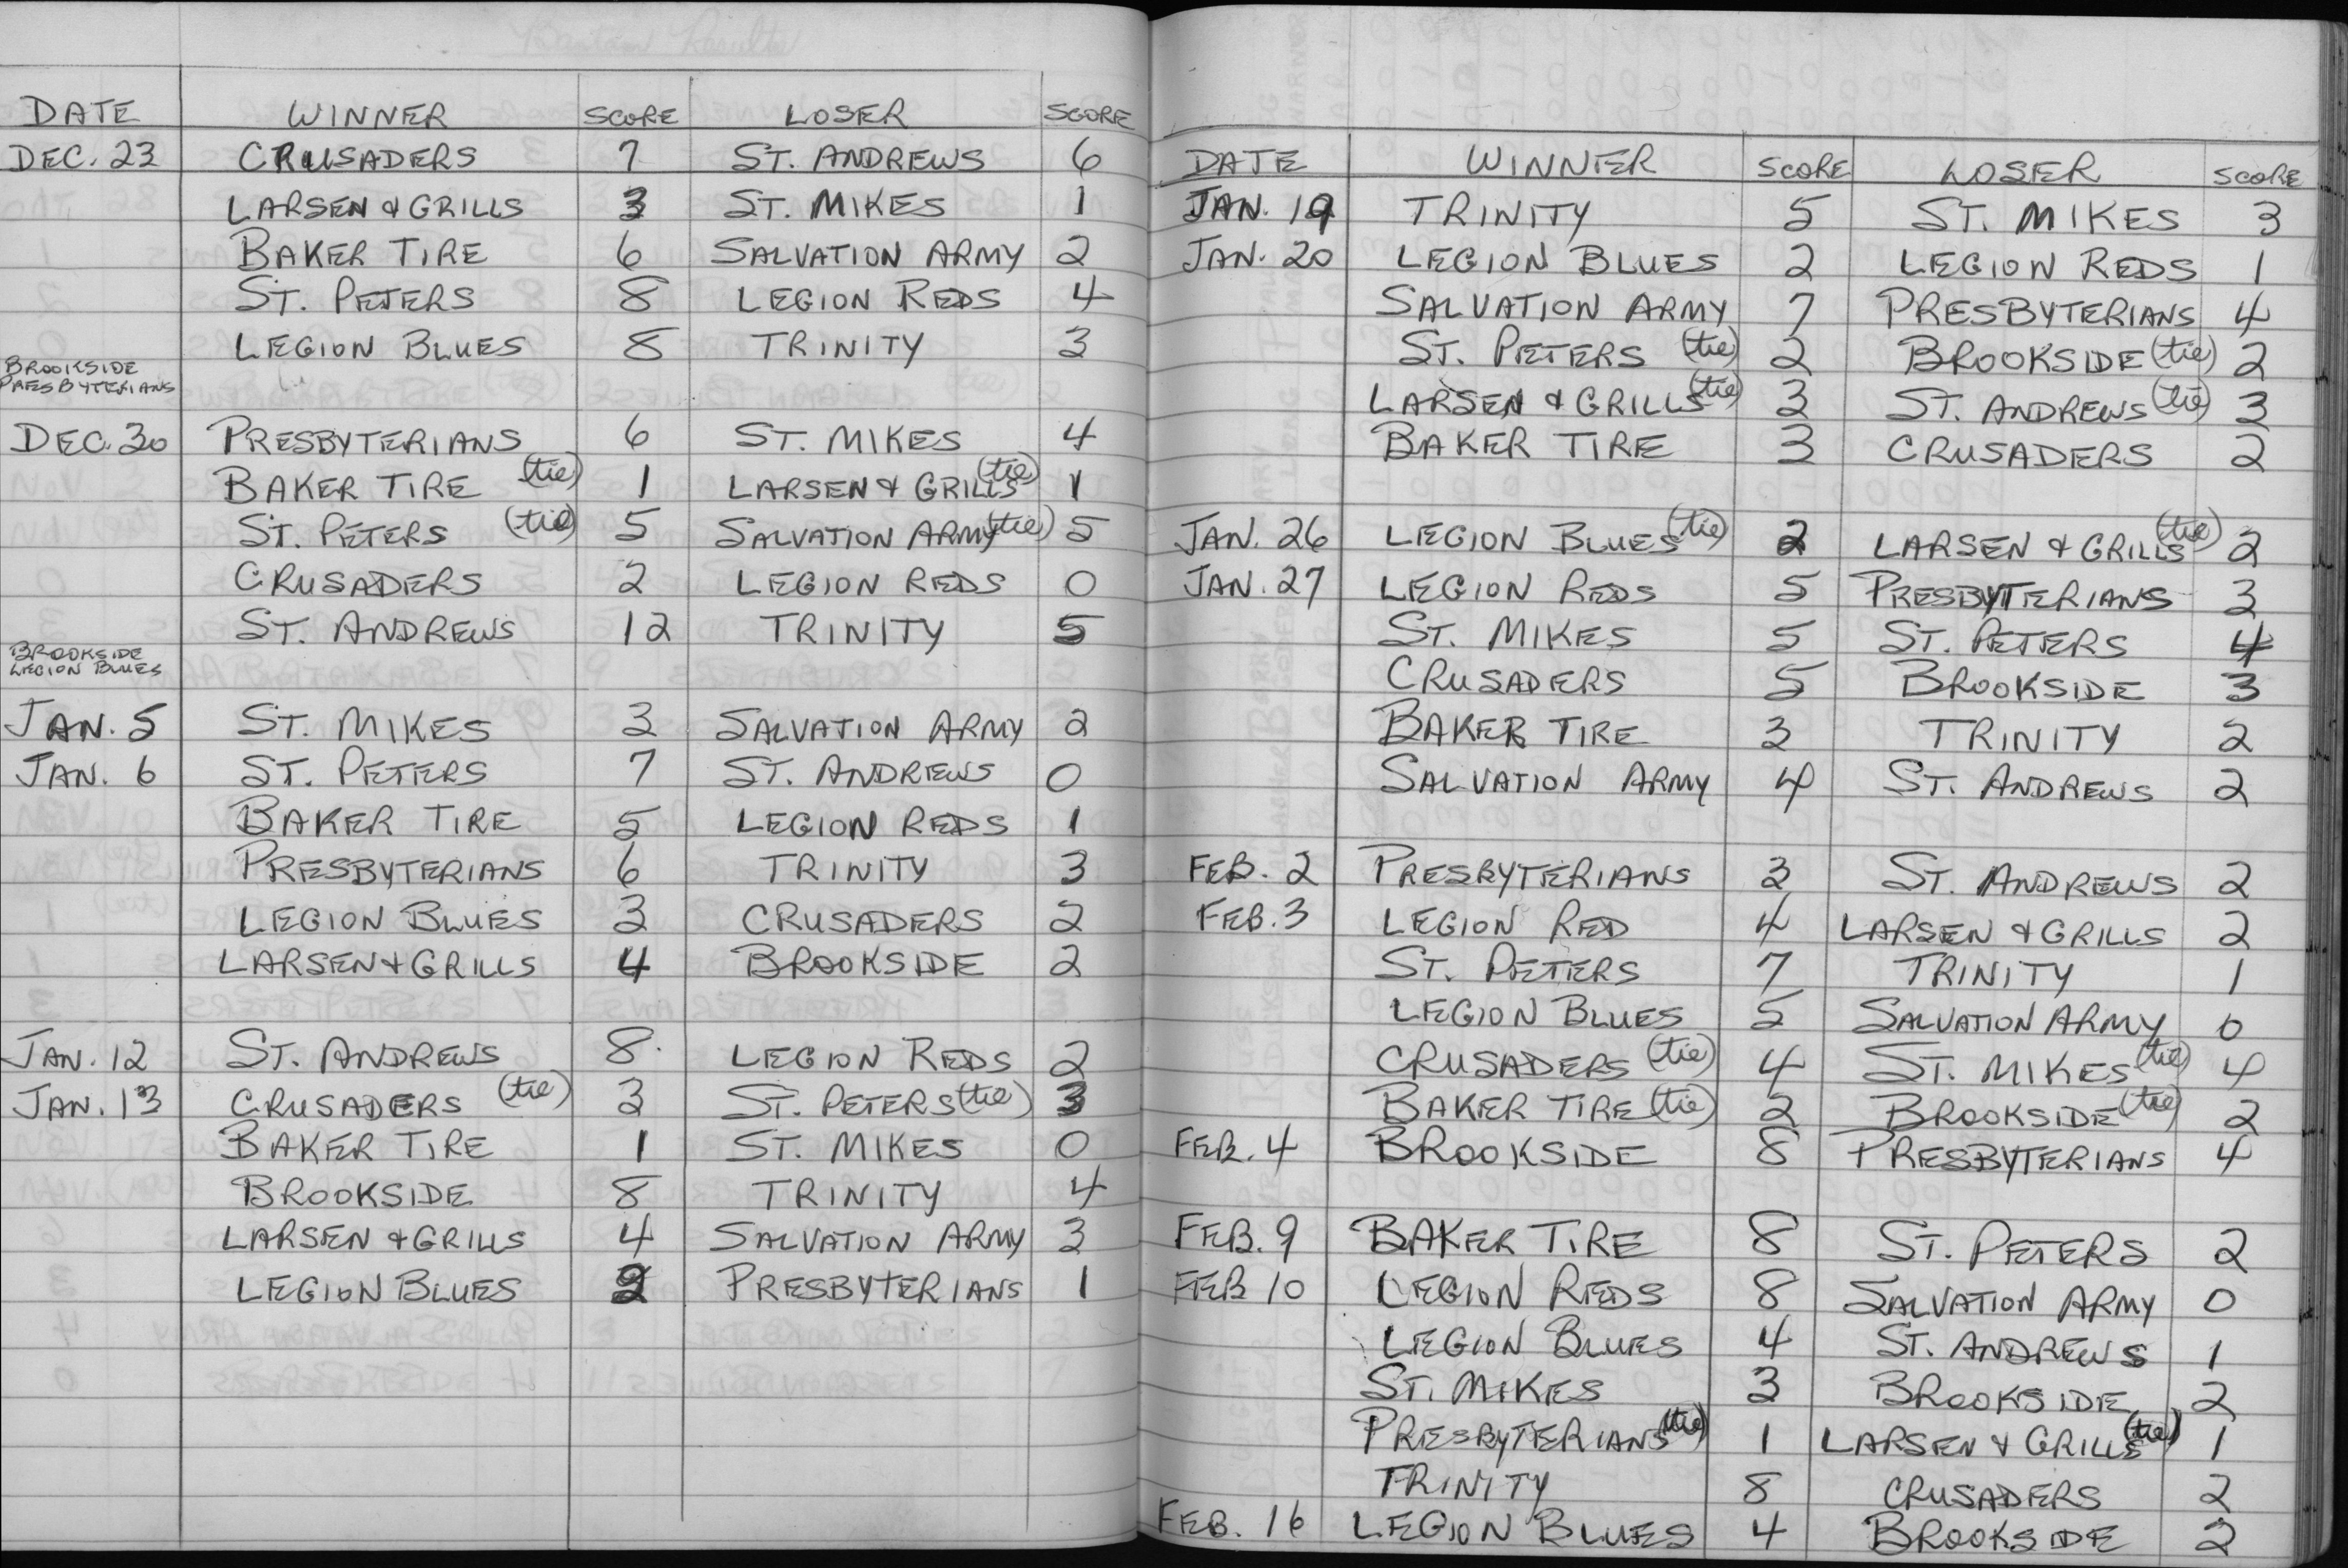 Bantam Results
DATE WINNER SCORE LOSER SCORE
DEC. 23 CRUSADERS 7 ST. ANDREWS 6
LARSEN & GRILLS 3 ST. MIKES 1
BAKER TIRE 6 SALVATION ARMY 2
ST. PETERS 8 LEGION REDS 4
LEGION BLUES 8 TRINITY 3
BROOKSIDE
PRESBYTERIANS
DEC. 30 PRESBYTERIANS 6 ST. MIKES 4
BAKER TIRE (tie) 1 LARSEN & GRILLS (tie) 1
ST. PETERS (tie) 5 SALVATION ARMY (tie) 5
CRUSADERS 2 LEGION REDS 0
ST. ANDREWS 12 TRINITY 5
BROOKSIDE
LEGION BLUES
JAN. 5 ST. MIKES 3 SALVATION ARMY 2
JAN. 6 ST. PETERS 7 ST. ANDREWS 0
BAKER TIRE 5 LEGION REDS 1
PRESBYTERIANS 6 TRINITY 3
LEGION BLUES 3 CRUSADERS 2
LARSEN & GRILLS 4 BROOKSIDE 2
JAN. 12 ST. ANDREWS 8 LEGION REDS 2
JAN. 13 CRUSADERS (tie) 3 ST. PETERS (tie) 3
BAKER TIRE 1 ST. MIKES 0
BROOKSIDE 8 TRINITY 4
LARSEN & GRILLS 4 SALVATION ARMY 3
LEGION BLUES 2 PRESBYTERIANS 1
DATE WINNER SCORE LOSER SCORE
JAN. 19 TRINITY 5 ST. MIKES 3
JAN. 20 LEGION BLUES 2 LEGION REDS 1
SALVATION ARMY 7 PRESBYTERIANS 4
ST. PETERS (tie) 2 BROOKSIDE (tie) 2
LARSEN & GRILLS (tie) 3 ST. ANDREWS (tie) 3
BAKER TIRE 3 CRUSADERS 2
JAN. 26 LEGION BLUES (tie) 2 LARSEN & GRILLS (tie) 2
JAN. 27 LEGION REDS 5 PRESBYTERIANS 3
ST. MIKES 5 ST. PETERS 4
CRUSADERS 5 BROOKSIDE 3
BAKER TIRE 3 TRINITY 2
SALVATION ARMY 4 ST. ANDREWS 2
FEB. 2 PRESBYTERIANS 3 ST. ANDREWS 2
FEB. 3 LEGION RED 4 LARSEN & GRILLS 2
ST. PETERS 7 TRINITY 1
LEGION BLUES 5 SALVATION ARMY 0
CRUSADERS (tie) 4 ST. MIKES (tie) 4
BAKER TIRE (tie) 2 BROOKSIDE (tie) 2
FEB. 4 BROOKSIDE 8 PRESBYTERIANS 4
FEB. 9 BAKER TIRE 8 ST. PETERS 2
FEB 10 LEGION REDS 8 SALVATION ARMY 0
LEGION BLUES 4 ST. ANDREWS 1
ST. MIKES 3 BROOKSIDE 2
PRESBYTERIANS (tie) 1 LARSEN & GRILLS (tie) 1
TRINITY 8 CRUSADERS 2
FEB. 16 LEGION BLUES 4 BROOKSIDE 2